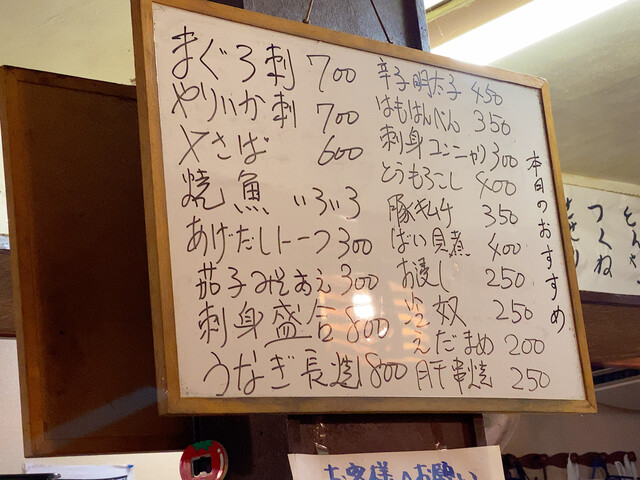 本日のおすすめ
辛子明太子 450
はもはんぺん 350
刺身コンニャク 300
とうもろこし 400
豚キムチ 350
ばい貝煮 400
お浸し 250
冷奴 250
えだまめ 200
肝串焼 250
まぐろ刺 700
やりいか刺 700
〆さば 600
焼魚 いろいろ
あげだしトーフ 300
茄子みそあえ 300
刺身盛合 800
うなぎ長焼 800
つくね
お客様へお願い